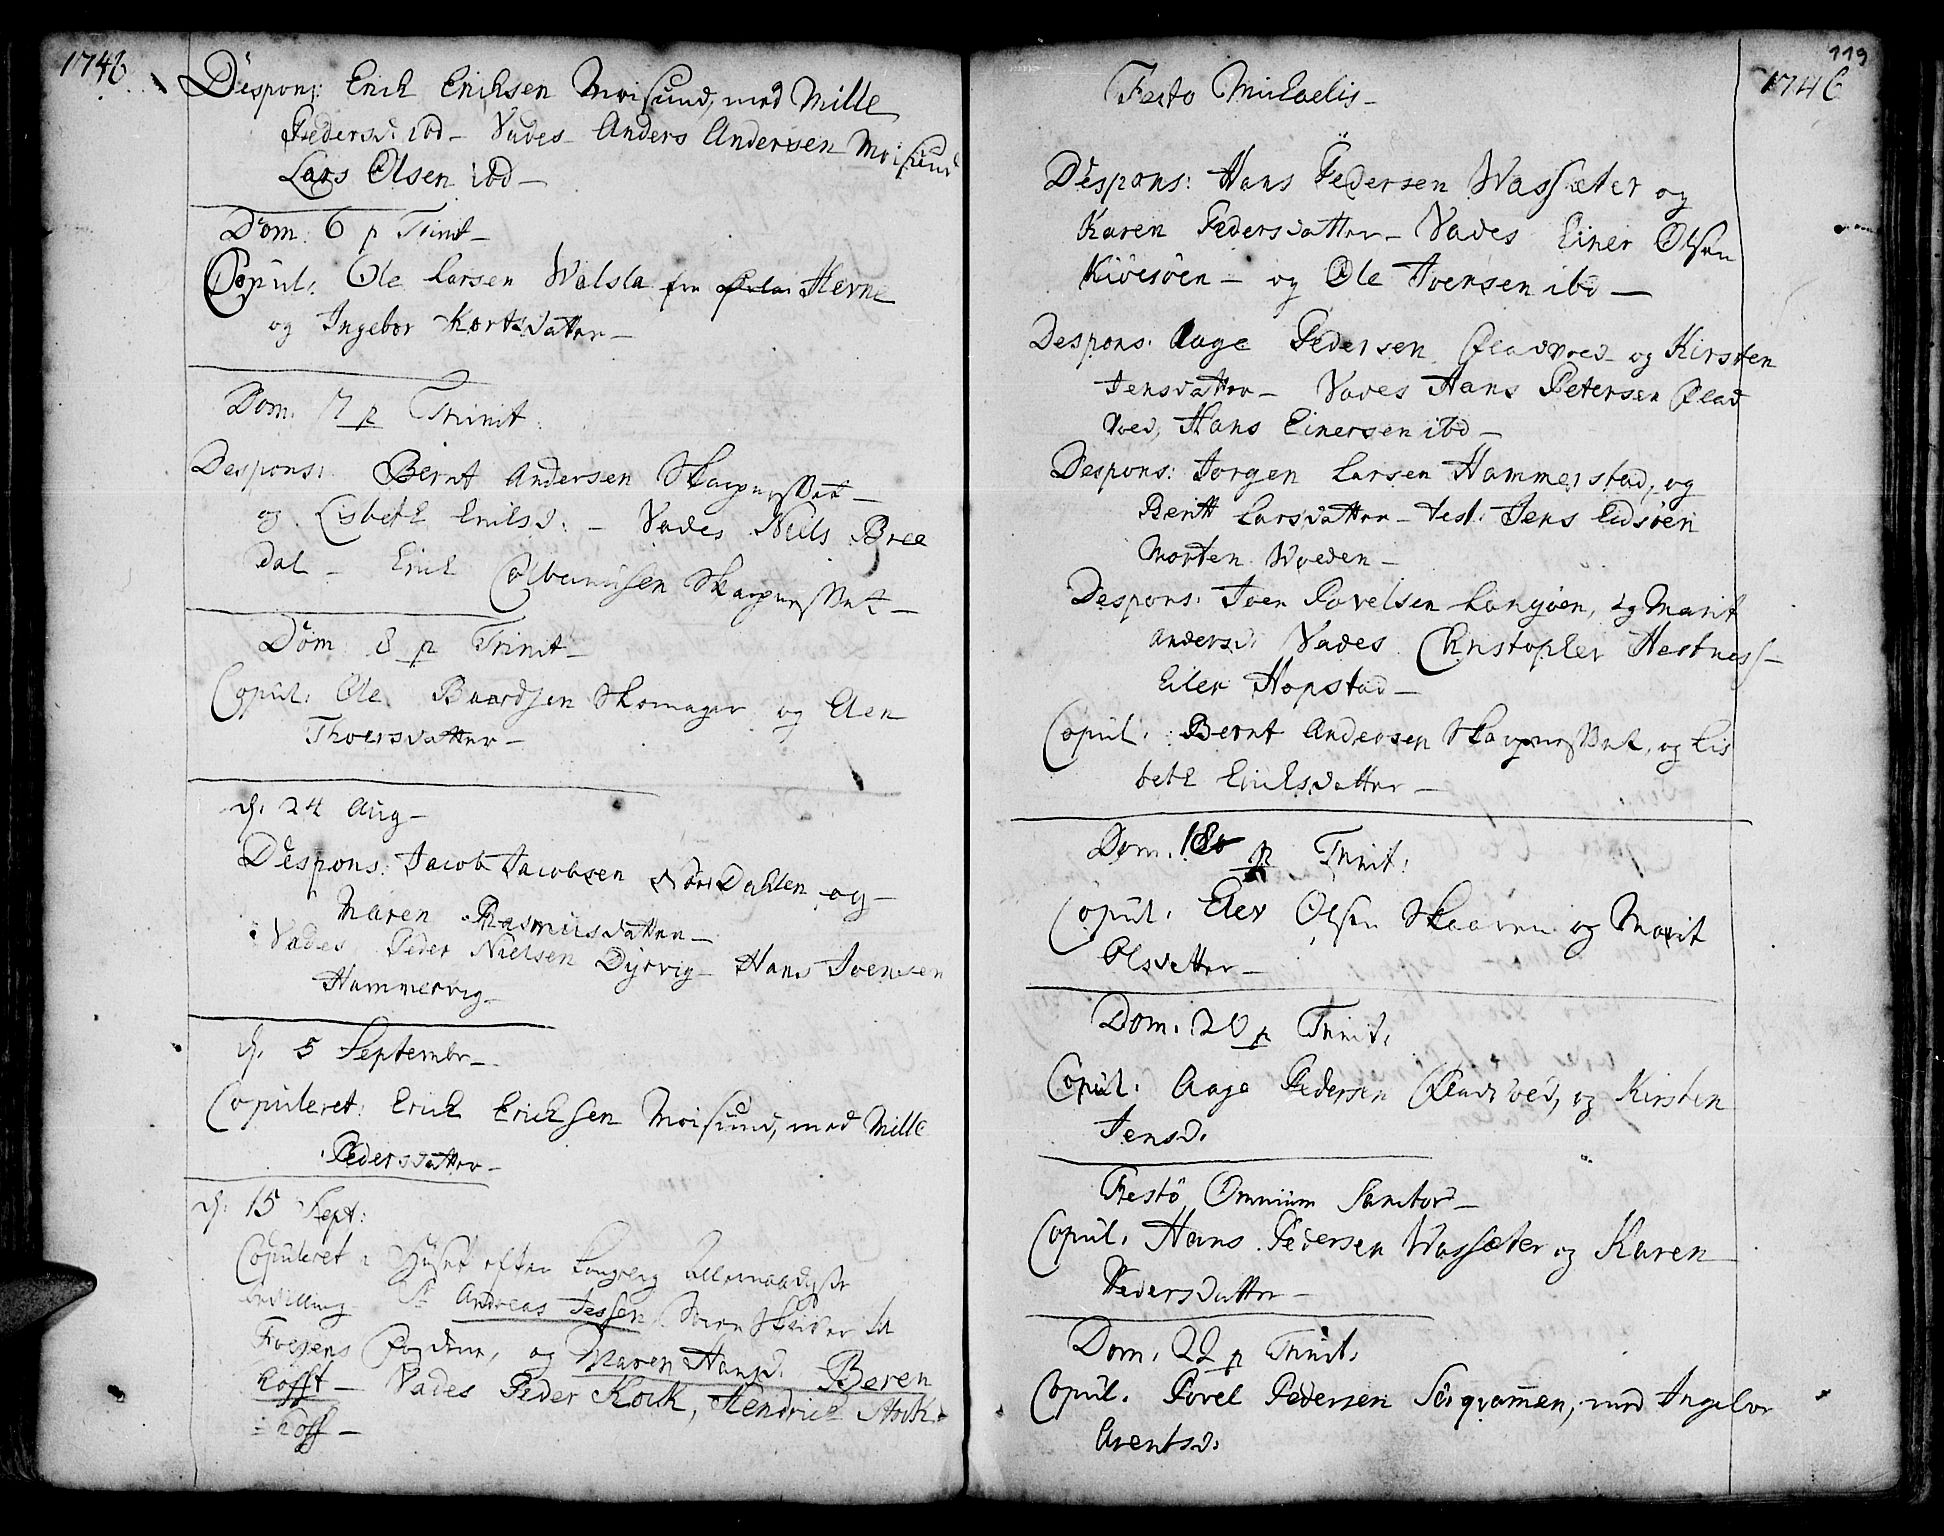 1746
Despons: Erich Erichsen Moisund, med Mille
Pedersd: ibd – Vades Anders Andersen Moisund
Lars Olsen ibd –
Dom: 6 p Trinit –
Copul: Ole Larsen Walsla fra Herne
og Ingebor Kortsdatter –
Dom. 7 p Trinit:
Despons: Bernt Andersen
og Lisbeth Erilsd: – Vades Niels Bree
dal – Erich
Dom 8 p Trinit –
Copul: Ole Baardsen Skomager og Elen
Thoersdatter –
d. 24 Aug –
Despons: Jacob Jacobsen Dahlen og –
Maren Rasmusdatter –
Vades Peder Nielsen Dyrvig – Hans Ivensen
Hammervig –
d. 5 Septembr –
Copuleret: Erich Erichsen Moisund, med Mille
Pedersdatter –
d. 15 Sept:
Copuleret i Huset efter Kongelig Allernaadigste
bevilling Sr Andreas Jessen Sorenskriver til
Fosens, og Maren Hansd. Beren
hofft – Vades Peder Kock, Hendrich
hoff –
119
1746
Festo Michaelis –
Despons: Hans Pedersen Wassæter og
Karen Pedersdatter – Vades Einer Olsen
Kiöesöen – og Ole Iversen ibd –
Despons: Aage Pedersen Fladvoed og Kirsten
Jensdatter – Vades Hans Petersen Flad
voed, Hans Einersen ibd –
Despons: Jorgen Larsen Hammerstad, og
Beritt Larsdatter – test: Jens Eidsöen
Morten Woeden –
Despons: Iver Povelsen, og Marit
Andersd: Vades Christopher Hestness –
Eiler Hopstad –
Copul: Bernt Andersen, og Lis
beth Erichsdatter –
Dom. 18 p Trinit:
Copul: Eler Olsen Skaaren og Marit
Olsdatter –
Dom: 20 p Trinit:
Copul: Aage Pedersen Fladvoed, og Kirsten
Jensd:
Festo Omnium Sanctor –
Copul: Hans Pedersen Wassæter og Karen
Pedersdatter –
Dom. 22 p Trinit:
Copul. Povel Pedersen, med Ingebor
Arentsd: